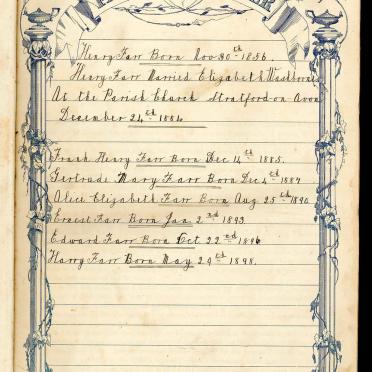 Henry Farr Born Nov 30th 1856.
Henry Farr Married Elizabeth Washbrook
At the Parish Church Stratford on Avon
December 24th 1884
Frank Henry Farr Born Dec 14th 1885.
Gertrude Mary Farr Born Dec 4th 1887
Alice Elizabeth Farr Born Aug 25th 1890
Ernest Farr Born Jan 2nd 1893.
Edward Farr Born Oct 22nd 1896
Harry Farr Born May 29th 1898.